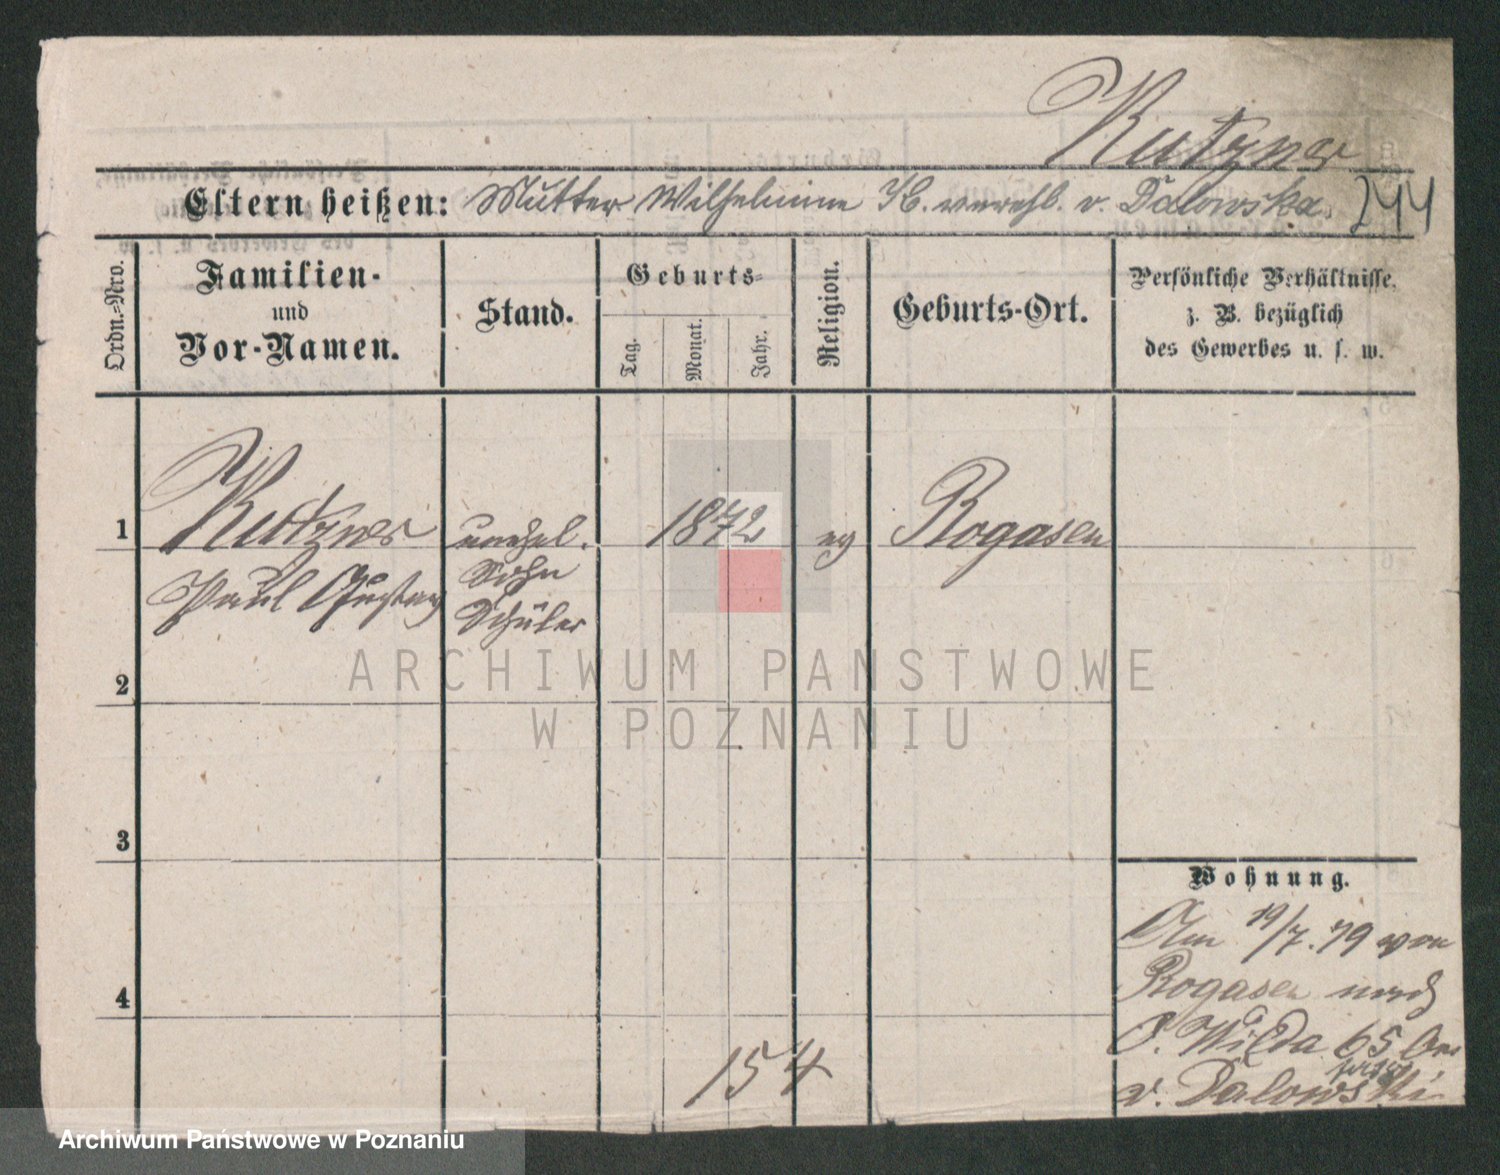 Kutzner
Eltern heißen: Mutter Wilhelmine K. verehl. v. Dalowska. 244
Ordn.=Nro.
Familien-
und
Vor-Namen.
Stand.
Geburts=
Tag.
Monat.
Jahr.
Religion.
Geburts-Ort.
Persönliche Verhältnisse,
z. B. bezüglich
des Gewerbes u. s. w.
1 Kutzner unehel. 1872 ev Rogasen
Paul Gustav Sohn
Schüler
2
3
4
Wohnung.
Am 19/7. 79 von
Rogasen nach
O. Wilda 65 bei
v. Dalowski.
154
ARCHIWUM PANSTWOWE
W POZNANIU
Archiwum Państwowe w Poznaniu